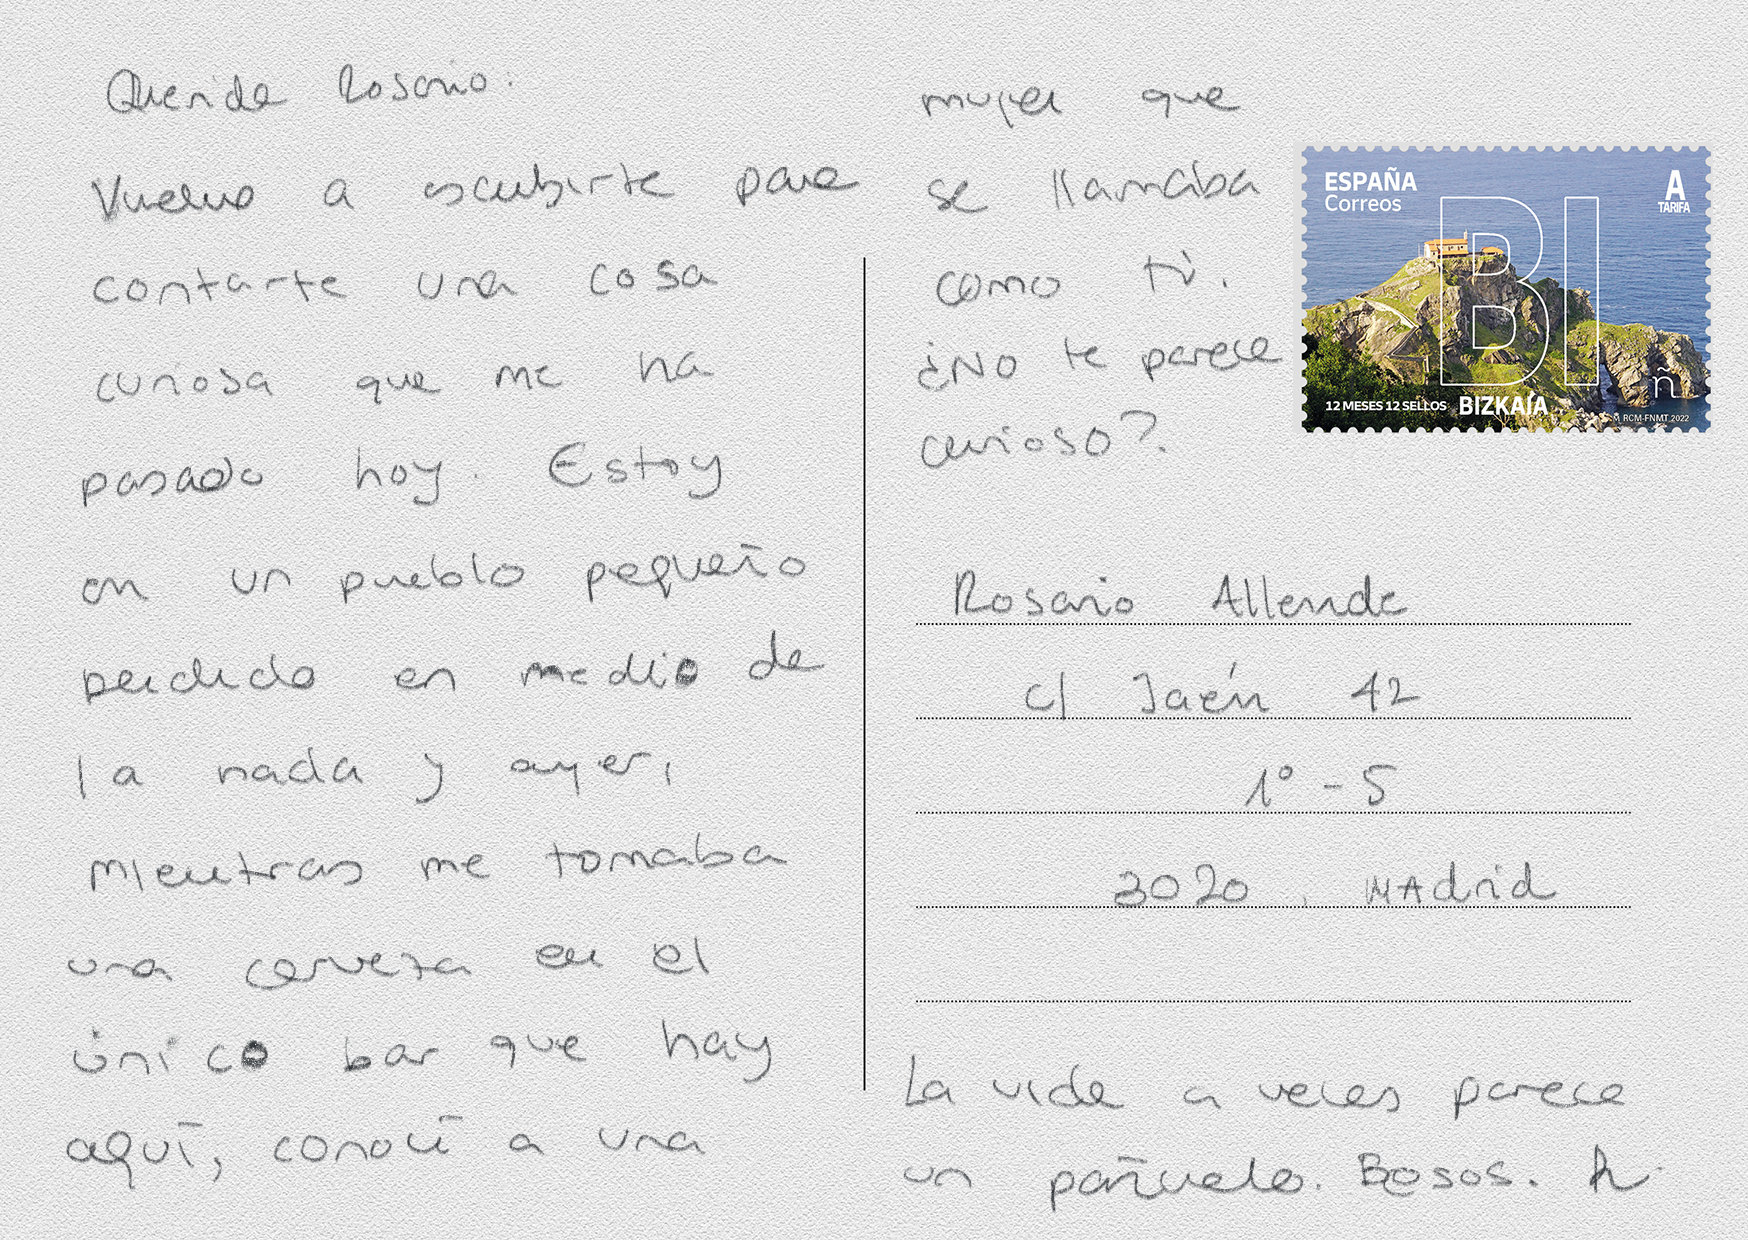 Querida Rosario:
Vuelvo a escribirte para
contarte una cosa
curiosa que me ha
pasado hoy. Estoy
en un pueblo pequeño
perdido en medio de
la nada y ayer,
mientras me tomaba
una cerveza en el
único bar que hay
aquí, conocí a una
mujer que
se llamaba
como tú.
¿No te parece
curioso?.
ESPAÑA
Correos
A
TARIFA
BI
ñ
12 MESES 12 SELLOS BIZKAÍA
RCM-FNMT 2022
Rosario Allende
c/ Jaén 42
1º - 5
3020, MAdrid
La vida a veces parece
un pañuelo. Besos. R.